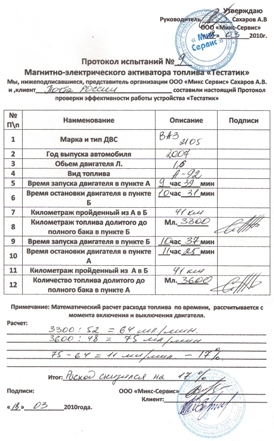 Утверждаю
Руководитель Сахаров А.В.
ООО «Микс-Сервис»
03 2010г.
Микс Сервис
Протокол испытаний №
Магнитно-электрического активатора топлива «Тестатик»
Мы, нижеподписавшиеся, представитель организации ООО «Микс Сервис» Сахаров А.В.
и ,клиент Почта России составили настоящий Протокол
проверки эффективности работы устройства «Тестатик»
№ П\п Наименование Описание Подписи
1 Марка и тип ДВС ВАЗ 2105
2 Год выпуска автомобиля 2007
3 Объем двигателя Л. 1,6
4 Вид топлива А-92
5 Время запуска двигателя в пункте А 9 час 39 мин
6 Время остановки двигателя в пункте Б 10 час 31 мин
7 Километраж пройденный из А в Б 41 км
8 Километраж топлива долитого до полного бака в пункте Б Мл. 3300
9 Время запуска двигателя в пункте Б 10 час 37 мин
10 Время остановки двигателя в пункте А 11 час 25 мин
11 Километраж пройденный из А в Б 41 км
12 Количество топлива долитого до полного бака в пункте А Мл. 3600
Примечание: Математический расчет расхода топлива по времени, рассчитывается с
момента включения и выключения двигателя.
Расчет:
3300 : 52 = 64 мл/мин.
3600 : 48 = 75 мл/мин
75 - 64 = 11 мл/мин - 17%
Итог: Расход снизился на 17 %
Подписи: ООО «Микс-Сервис»
Клиент:
«18» 03 2010года.